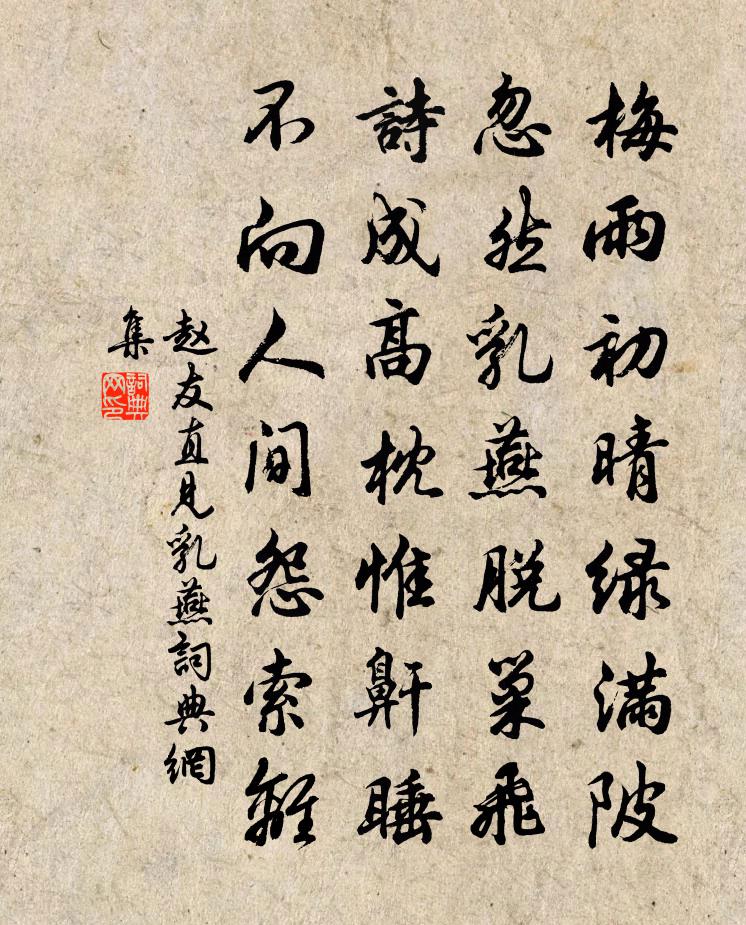 梅雨初晴绿满陂
忽然乳燕脱巢飛
詩成高枕惟鼾睡
不向人间怨索離
赵友直见乳燕詞典網
集
詞典网印